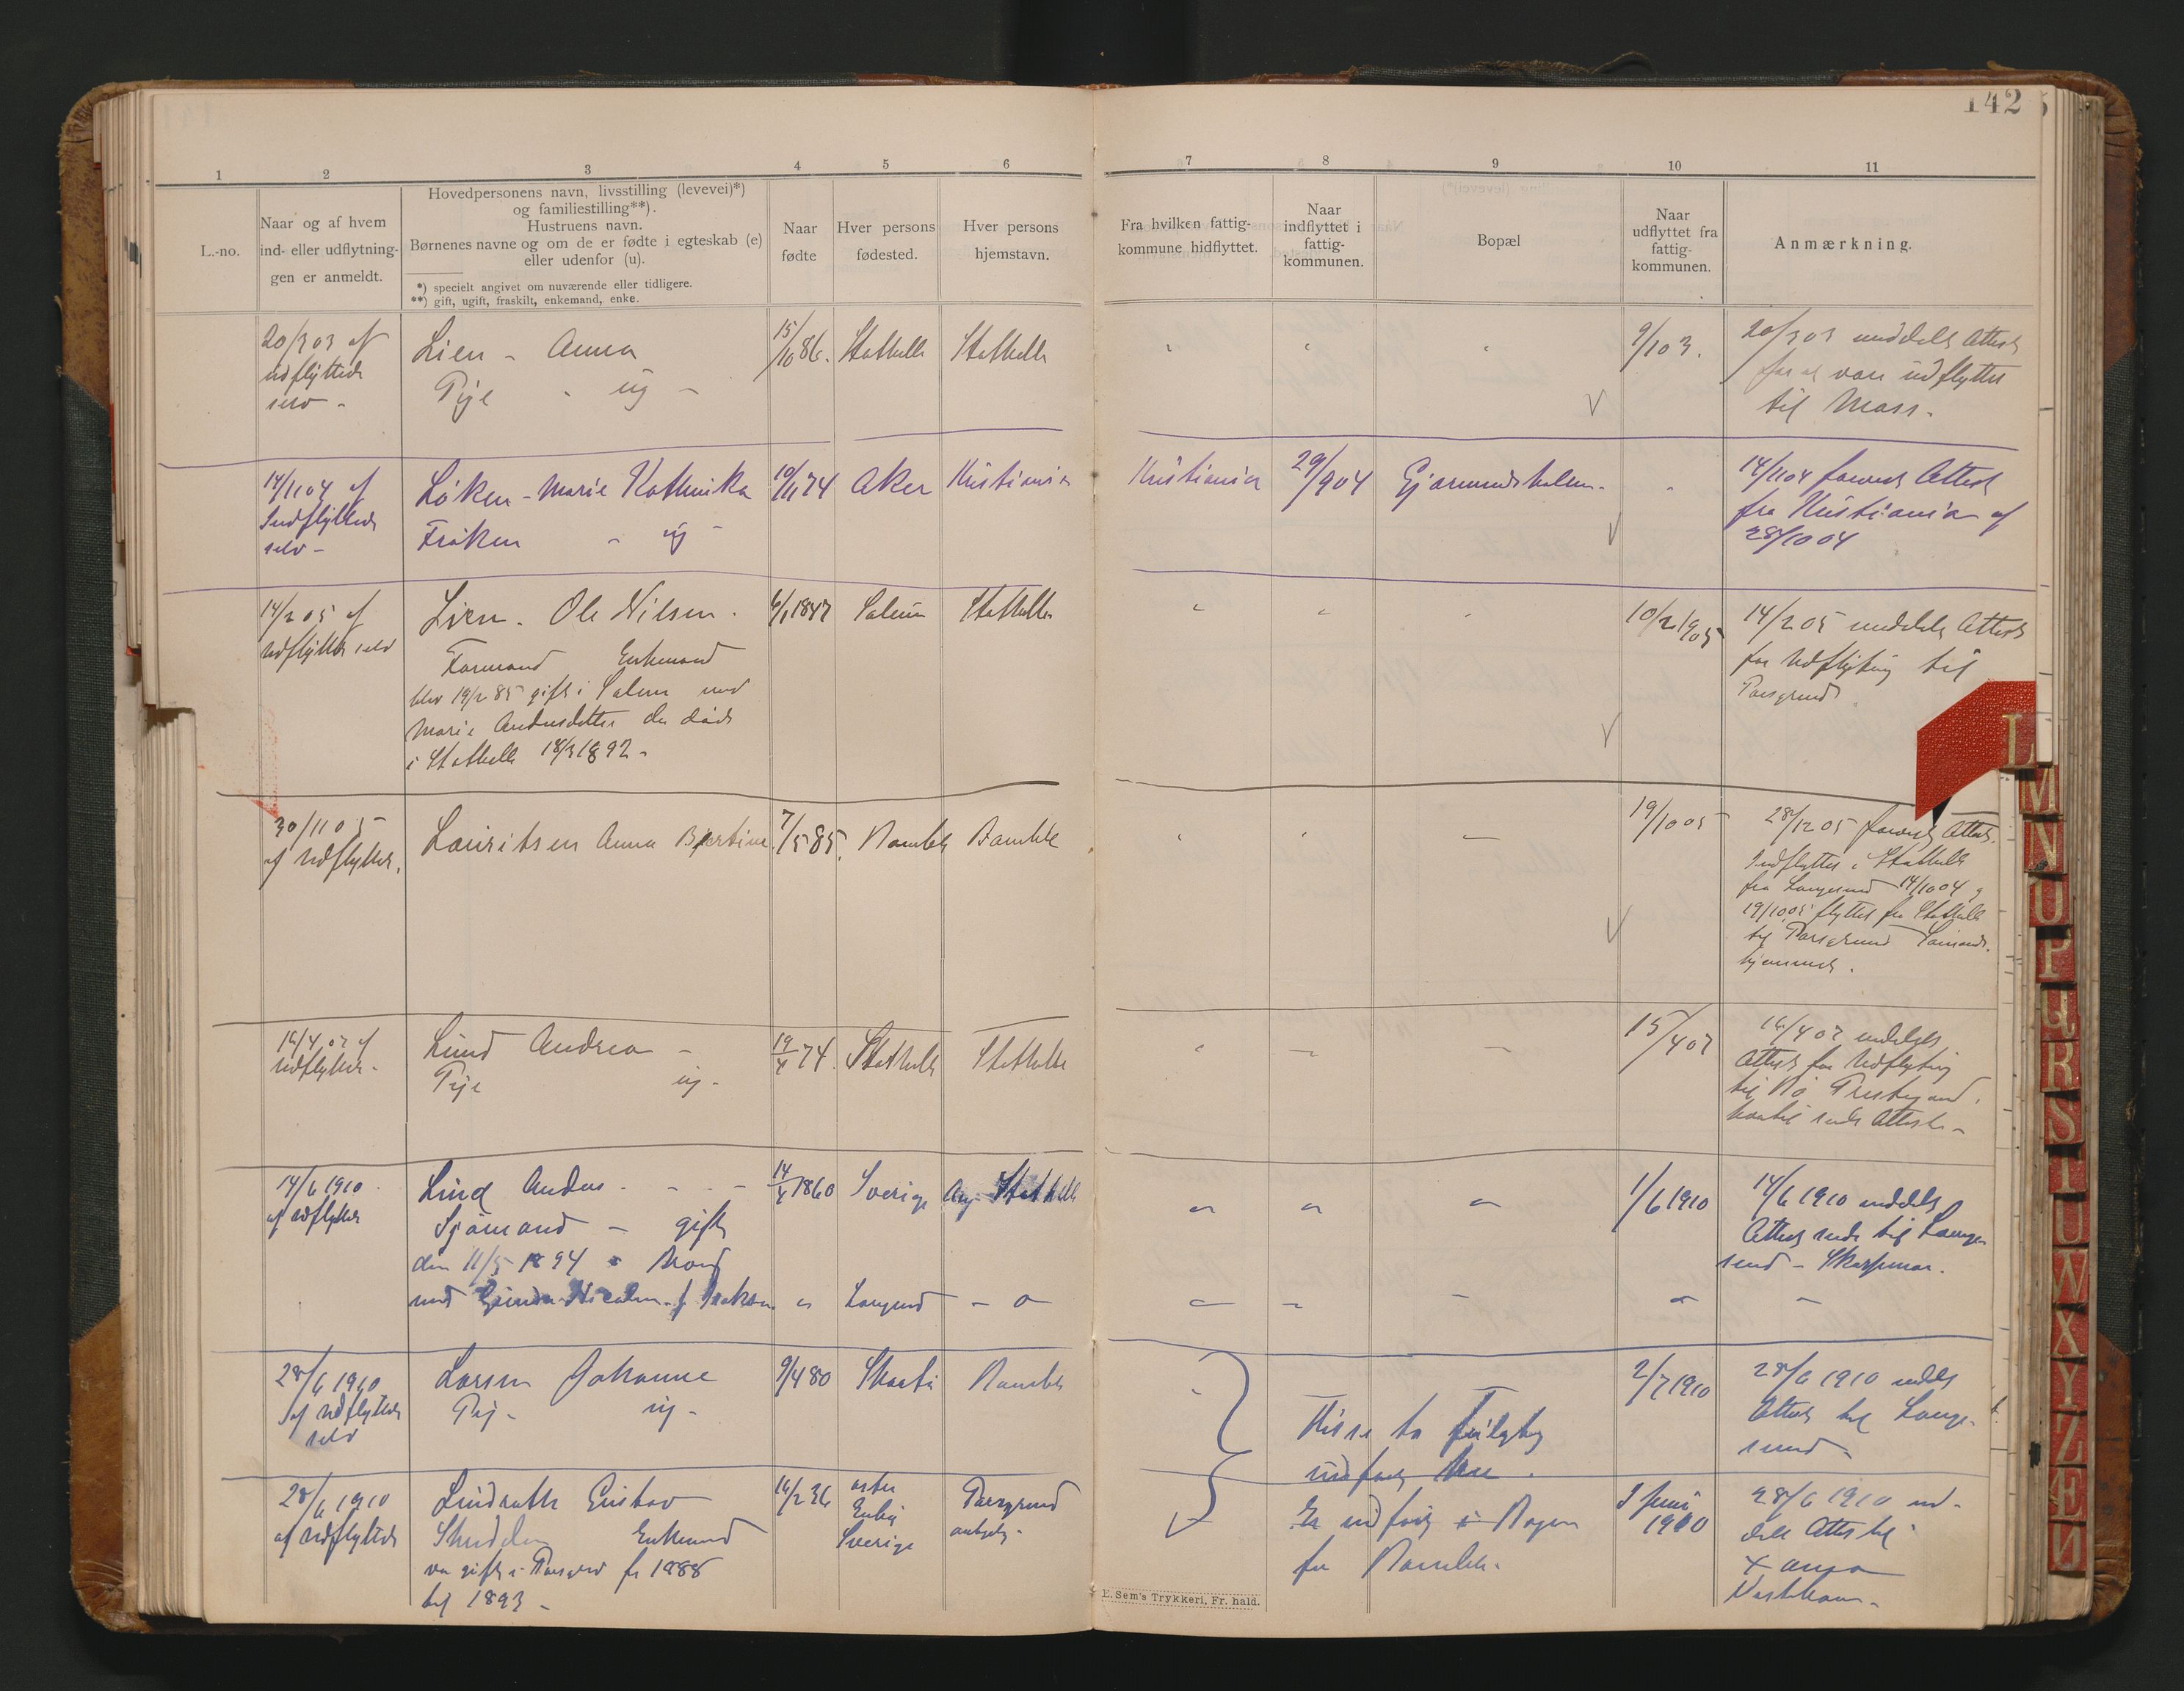 142
1 2 3 4 5 6 7 8 9 10 11
L.-no.
Naar og af hvem
ind- eller udflytnin-
gen er anmeldt.
Hovedpersonens navn, livsstilling (levevei)*)
og familiestilling**).
Hustruens navn.
Børnenes navne og om de er fødte i egteskab (e)
eller udenfor (u).
*) specielt angivet om nuværende eller tidligere.
**) gift, ugift, fraskilt, enkemand, enke.
Naar
fødte
Hver persons
fødested.
Hver persons
hjemstavn.
Fra hvilken fattig-
kommune hidflyttet.
Naar
indflyttet i
fattig-
kommunen.
Bopæl
Naar
udflyttet fra
fattig-
kommunen.
Anmærkning.
20/3 03 af
udflyttede
selv -
Lien - Anna
Pige - ug -
15/10 86.
Stathelle
Stathelle
9/10 3.
20/3 03 meddelt Attest
for at være udflyttet
til Moss.
14/11 04 af
Indflyttede
selv -
Løken - Marie Kathinka
Frøken - ug -
10/11 74
Aker
Kristiania
Kristiania
29/9 04
Gjermundsholmen.
14/11 04 forevist Attest
fra Kristiania af
28/10 04
14/2 05 af
Udflyttede selv
Lien - Ole Nilsen.
Formand Enkemand
blev 19/2 85 gift i Solum med
Marie Andersdatter der døde
i Stathelle 18/3 1892 -
6/1 1847
Solum
Stathelle
10/2 1905
14/2 05 meddelt Attest
for Udflytning til
Porsgrund.
30/11 05
af Udflyttede.
Lauritsen Anna Bertine.
7/5 85.
Bamble
Bamble
19/10 05
28/12 05 forevist Attest.
Indflyttet i Stathelle
fra Langesund 14/10 04 &
19/10 05 flyttet fra Stathelle
til Porsgrund
16/4 07 af
Udflyttede -
Lund Andrea -
Pige ug.
19/4 74.
Stathelle
Stathelle
15/4 07
16/4 07 meddelt
Attest for Udflytning
til Bø Prestegjeld.
hvortil sendt Attesten -
14/6 1910
af udflyttede
Lind Anders - - -
Sjømand - gift
den 11/5 1894
med
14/4 1860
Sverige
Stathelle
Langesund
1/6 1910
14/6 1910 meddelt
Attest sendt til Lange-
sund -
28/6 1910
af Udflyttede
selv
Larsen Johanne
Pige - ug -
9/4 80
Skaatø
Bamble
2/7 1910
28/6 1910 meddelt
Attest til Lange-
sund -
Disse to
indført her.
28/6 1910
af Udflyttede
Lindroth Gustav
Enkemand
var gift i Porsgrund fr 1888
til 1893 -
16/2 36
Sverige
Porsgrund
Er indført i Bogen
for Bamble.
1 juni
1910
28/6 1910 med-
delt Attest til
E. Sem's Trykkeri, Fr. hald.
L
M
N
O
P
Q
R
S
T
U
W
X
Y
Z
Æ
Ø